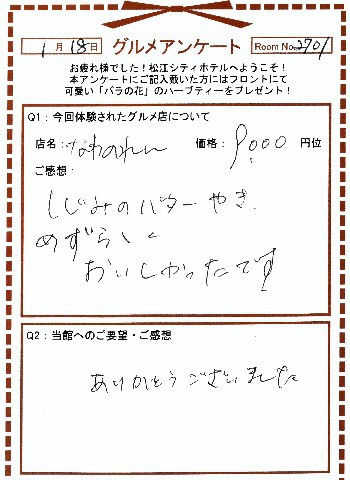 1月18日 グルメアンケート Room No.2701
お疲れ様でした！松江シティホテルへようこそ！
本アンケートにご記入敷いた方にはフロントにて
可愛い「バラの花」のハーブティーをプレゼント！
Q1：今回体験されたグルメ店について
店名： なわのれん 価格： 9,000 円位
ご感想：
しじみのバターやき、
めずらしく
おいしかったです
Q2：当館へのご要望・ご感想
ありがとうございました